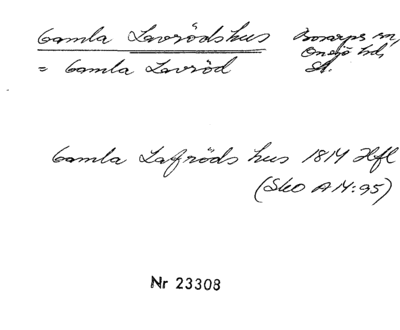 Gamla Lavrödshus Bosarps sn,
Onsjö hd,
= Gamla Lavröd M.
Gamla Lafröds hus 1814 Hfl
(Sko A 14:95)
Nr 23308